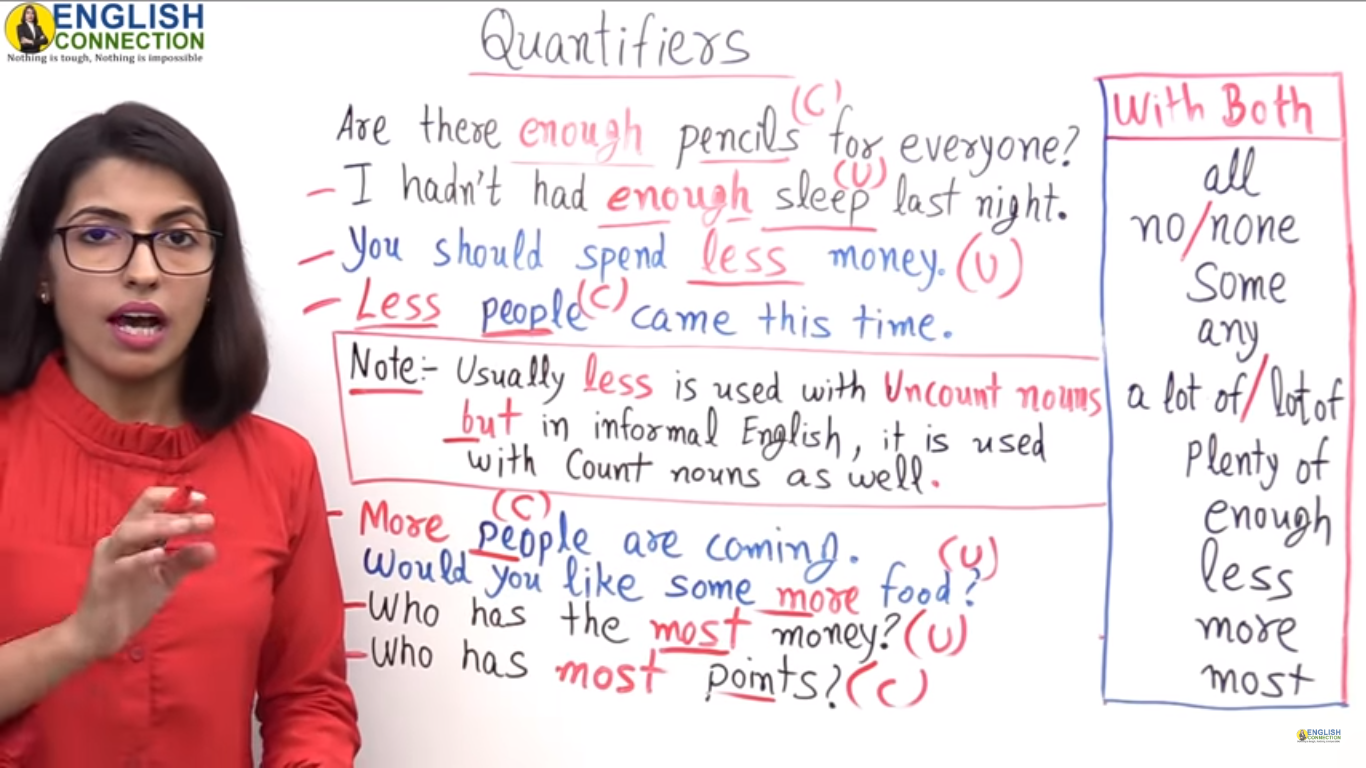 ENGLISH
CONNECTION
Nothing is tough, Nothing is impossible
Quantifiers
Are there enough pencils (C) for everyone?
– I hadn't had enough sleep (U) last night.
– You should spend less money. (U)
– Less people (C) came this time.
Note:- Usually less is used with Uncount nouns
but in informal English, it is used
with Count nouns as well.
– More people (C) are coming.
Would you like some more food? (U)
– Who has the most money? (U)
– Who has most points? (C)
With Both
all
no/none
Some
any
a lot of/lot of
Plenty of
enough
less
more
most
ENGLISH
CONNECTION